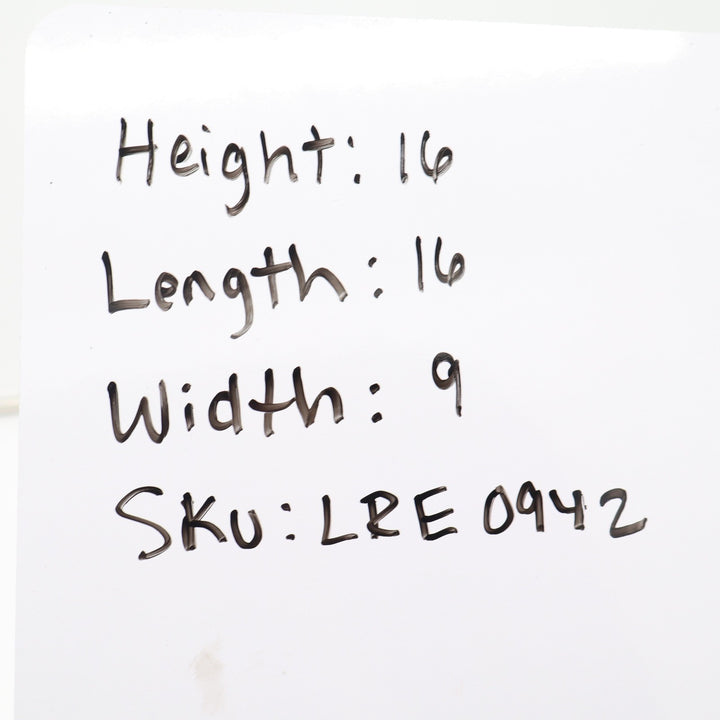 Height: 16
Length: 16
Width: 9
SKU: LRE 0942